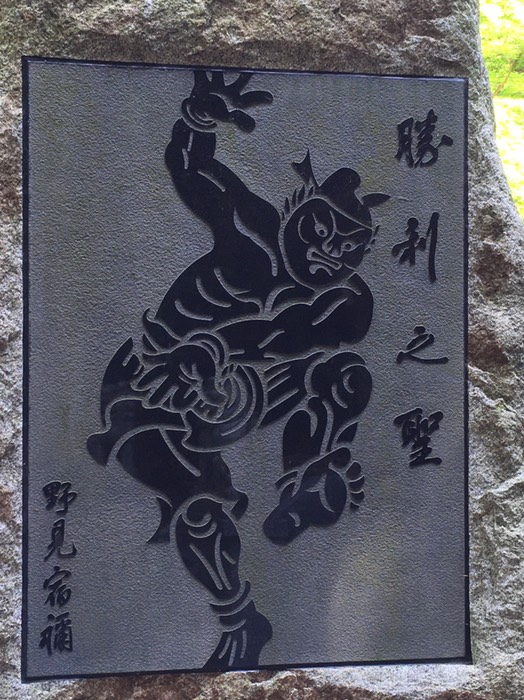 勝利之聖
野見宿禰